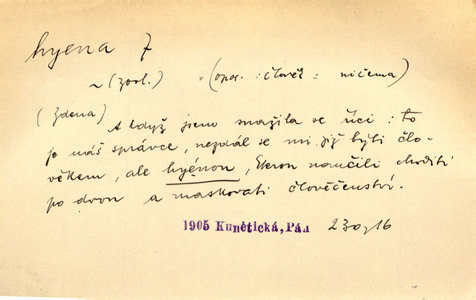 hyena 7
~ (zool.) = (opov. : člověk = ničema)
(Zdena)
A když jsem snažila se říci : to
je náš správce, nezdál se mi již býti člo-
věkem, ale hyénou, kterou naučili choditi
po dvou a maskovati člověčenství.
1905 Kunětická, Pán 230, 16